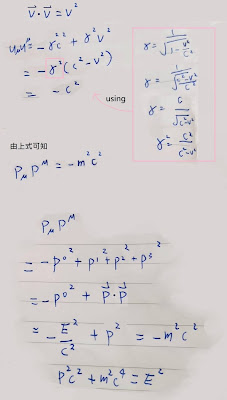 v⃗·v⃗ = v²
uμu^μ = -γ²c² + γ²v²
= -γ²(c²-v²)
= -c²
using
γ = 1/√(1-v²/c²)
γ = 1/√((c²-v²)/c²)
γ = c/√(c²-v²)
γ² = c²/(c²-v²)
由上式可知
PμP^μ = -m²c²
PμP^μ
= -p⁰² + p¹² + p²² + p³²
= -p⁰² + p⃗·p⃗
= -E²/c² + p² = -m²c²
p²c² + m²c⁴ = E²